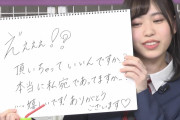 ええええ!?
頂いちゃっていいんですか
本当に私宛であってますか…
…嬉しいです ありがとう
ございます♡